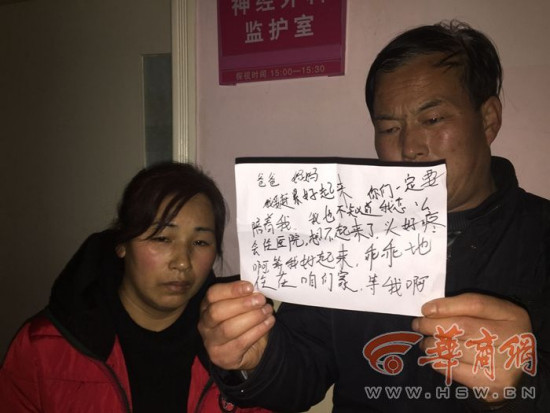 神经外科
监护室
探视时间 15:00—15:30
爸爸 妈妈
好起来 你们一定要
陪着我. 我也不知道我怎么
会住医院,想不起来了,头好疼
啊等我好起来,乖乖地
住在咱们家.等我啊
华商网
WWW.HSW.CN